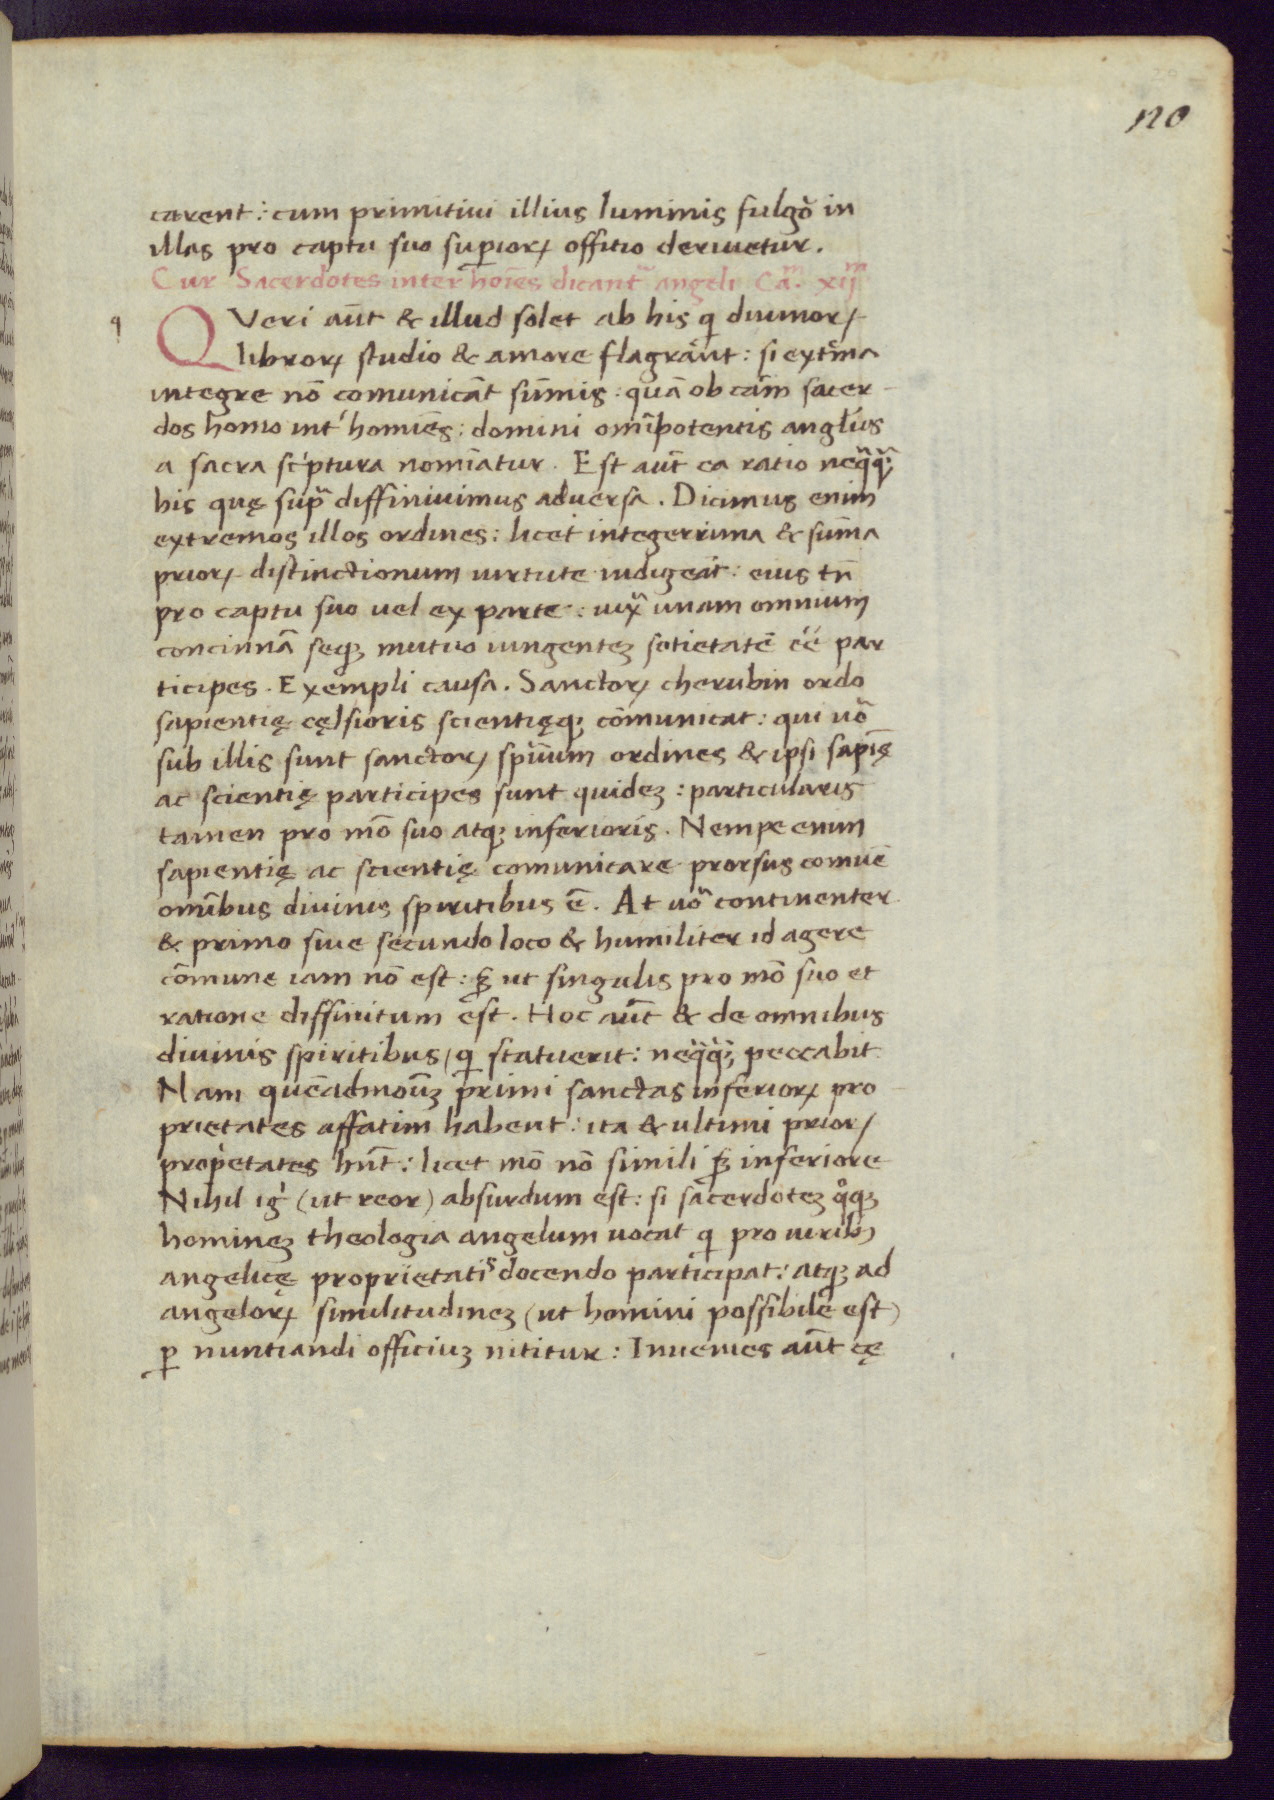 120
carent: cum primitiui illius luminis fulgo᷒ in
illas pro captu suo supiorꝝ offitio deriuetur.
Cur Sacerdotes inter hoīes dicant᷑ angeli Ca᷒. xijᵐ
q
QVeri aūt & illud solet ab his q diuinorꝝ
librorꝝ studio & amore flagrānt: si extīma
integre nō comunicāt sūmis: quā ob cām sacer-
dos homo int᾽ homīes: domini omīpotentis angl̄us
a sacra sc᾽ptura nomīatur. Est aūt ea ratio neq̄q̄ꝫ
his quę sup̄ diffiniuimus aduersa. Dicimus enim
extremos illos ordines: licet integerrima & sūma
priorꝝ distinctionum uirtute indigeāt: eius tn̄
pro captu suo uel ex parte: iux̄ unam omnium
concinnā seqꝫ mutuo iungenteꝫ sotietatē eē par
ticipes. Exempli causa. Sanctorꝝ cherubin ordo
sapientię cęlsioris scientięqꝫ cōmunicat: qui uo᷒
sub illis sunt sanctorꝝ spūum ordines & ipsi sapīę
ac scientię participes sunt quideꝫ: particularis
tamen pro mō suo atqꝫ inferioris. Nempe enim
sapientię ac scientię comunicare prorsus comūe
omībus diuinis spiritibus ē. At uo᷒ continenter
& primo siue secundo loco & humiliter id agere
cōmune iam nō est: sꝫ ut singulis pro mō suo et
ratione diffinitum est. Hoc aūt & de omnibus
diuinis spiritibus, q statuerit: neq̄q̄ꝫ peccabit
Nam quēadmodūꝫ primi sanctas inferiorꝝ pro-
prietates affatim habent: ita & ultimi priorꝝ
prop᾽etates hn̄t: licet mō nō simili sꝫ inferiore
Nihil ig᾽ (ut reor) absurdum est: si sacerdoteꝫ q̊qꝫ
homineꝫ theologia angelum uocat q pro uiribꝫ
angelicę proprietatis docendo participat: atqꝫ ad
angelorꝝ similitudineꝫ (ut homini possibile est)
ꝑ nuntiandi officiuꝫ nititur: Inuenies aūt eę